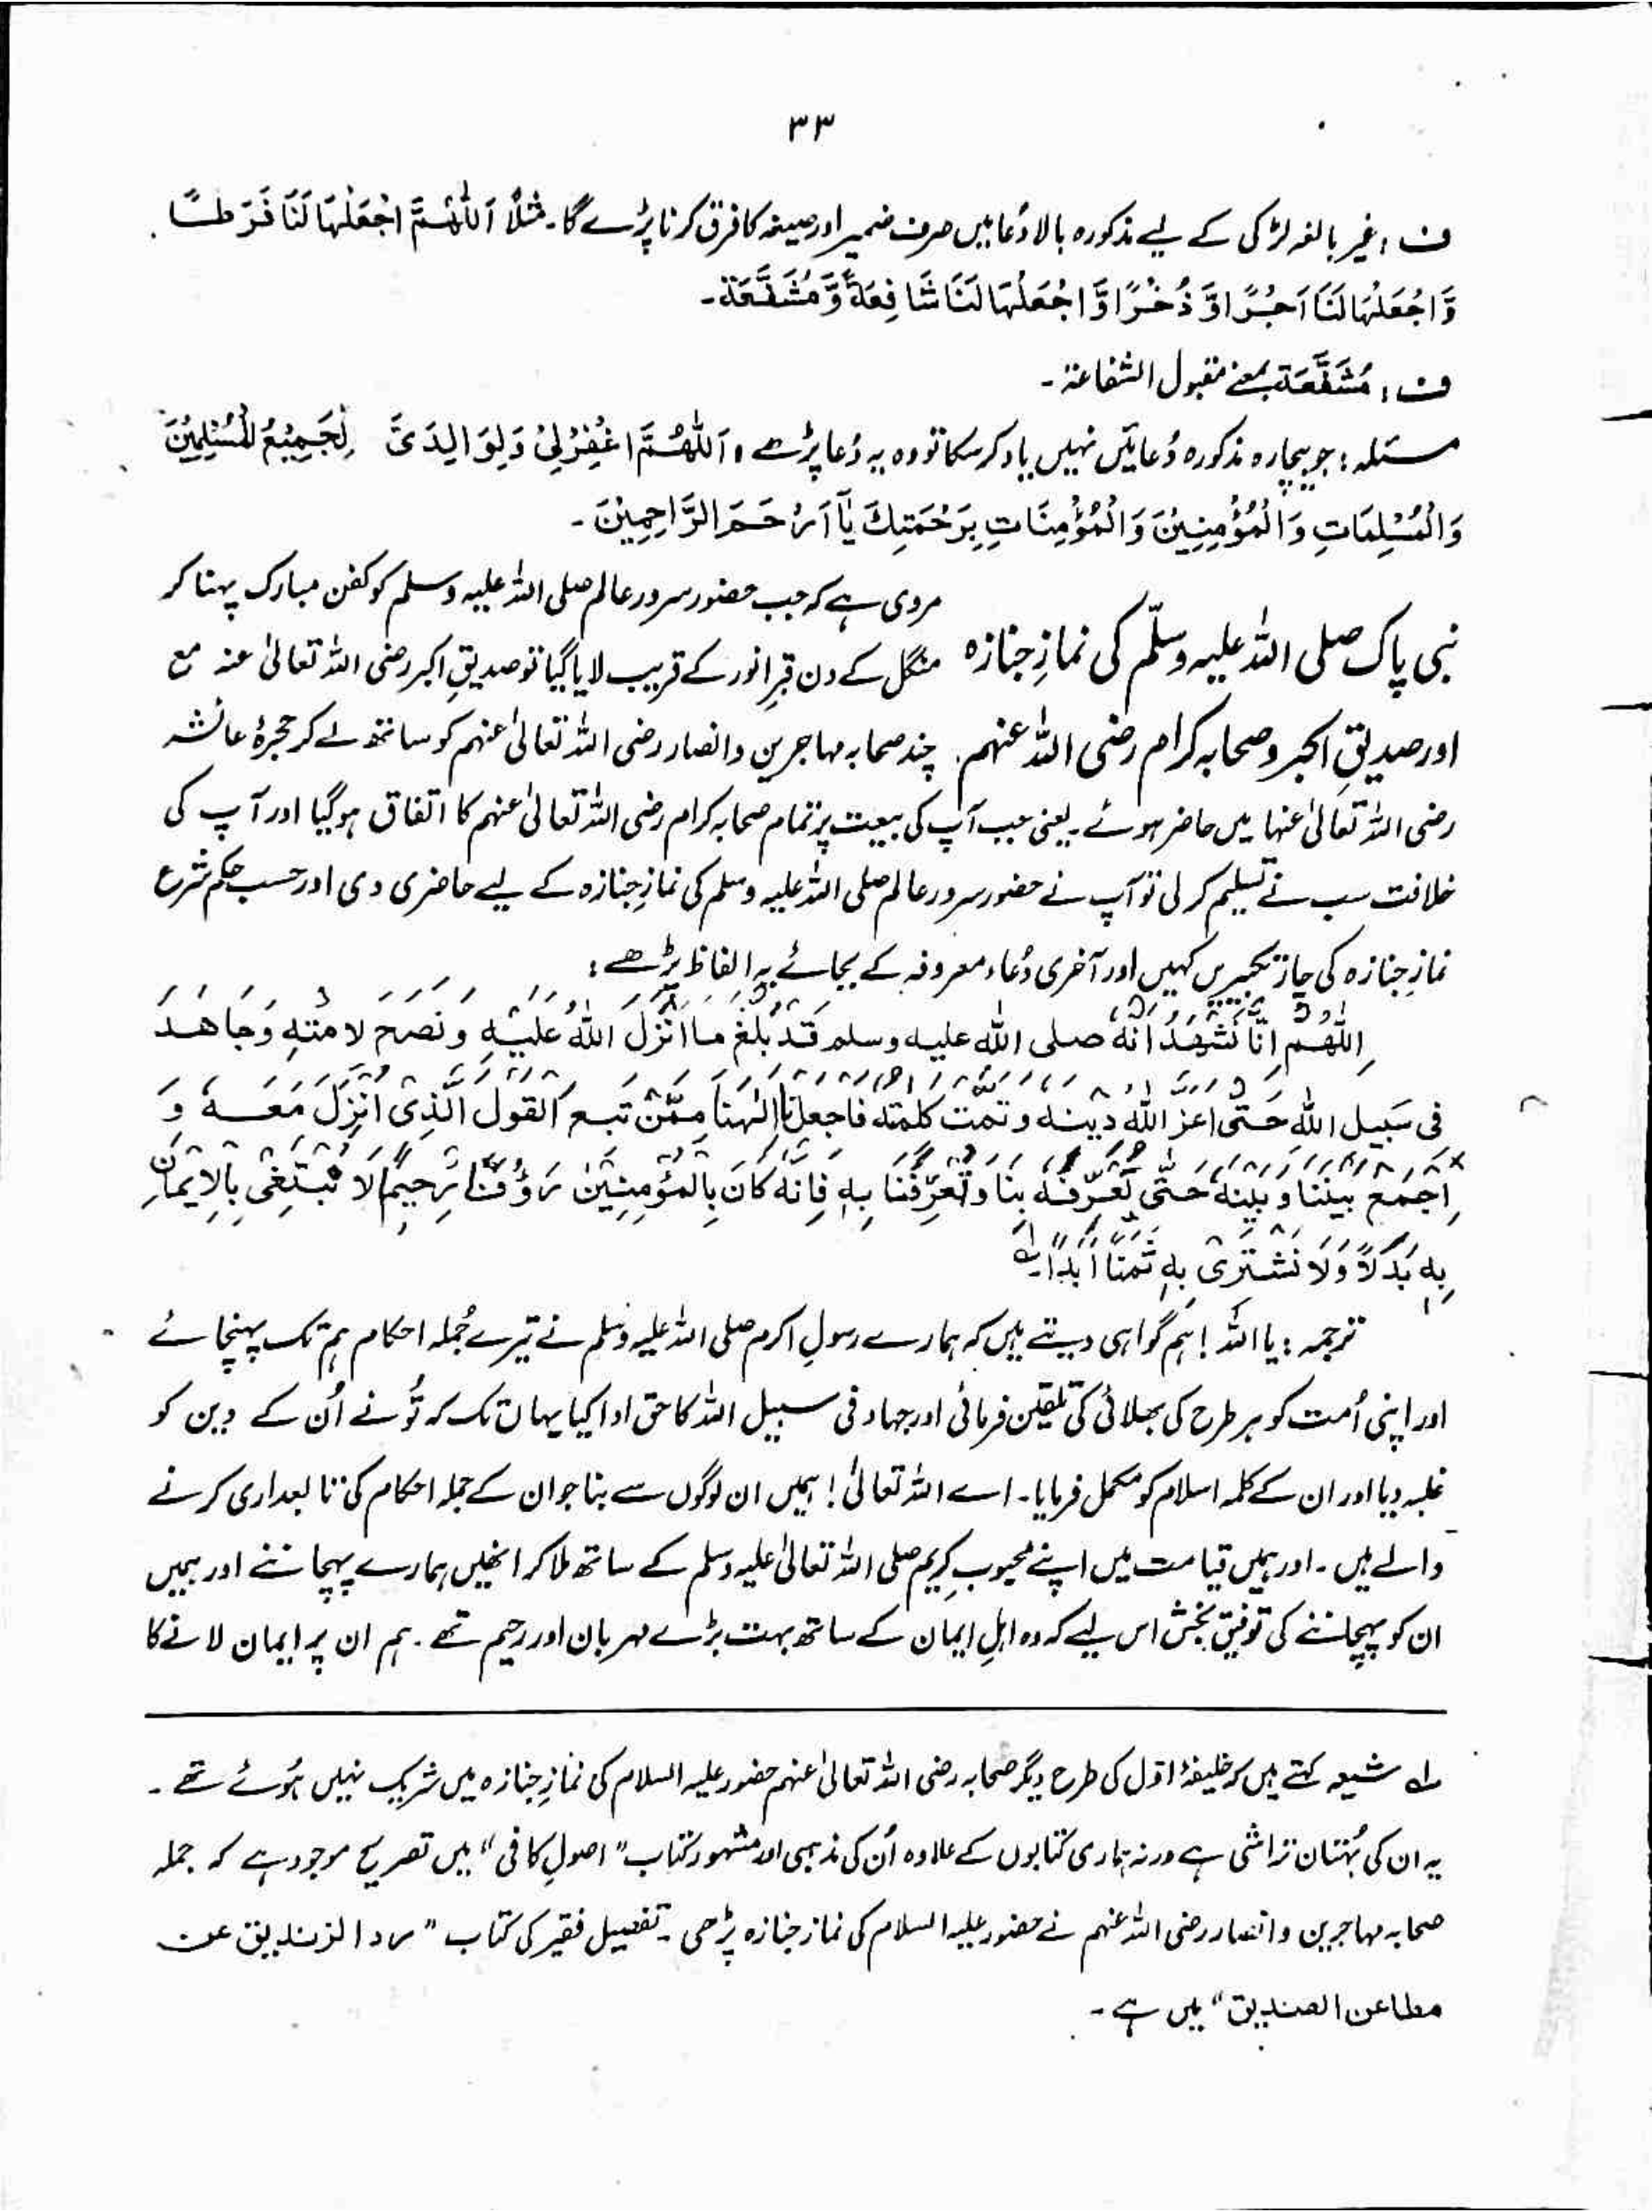 ۳۳
ف ؛ غیر بالغہ لڑکی کے لیے مذکورہ بالا دُعا میں صرف ضمیر اور صیغہ کا فرق کرنا پڑے گا۔ مثلاً اَللّٰھُمَّ اجْعَلْہَا لَنَا فَرَطًا
وَّاجْعَلْہَا لَنَا اَجْرًا وَّ ذُخْرًا وَّاجْعَلْہَا لَنَا شَافِعَۃً وَّ مُشَفَّعَۃ۔
ف ؛ مُشَفَّعَۃ بمعنے مقبول الشفاعۃ۔
مسئلہ : جو بیچارہ مذکورہ دُعائیں نہیں یاد کر سکا تو وہ یہ دُعا پڑھے ، اَللّٰھُمَّ اغْفِرْلِیْ وَلِوَالِدَیَّ لِجَمِیْعِ الْمُسْلِمِیْنَ
وَالْمُسْلِمَاتِ وَالْمُؤْمِنِیْنَ وَالْمُؤْمِنَاتِ بِرَحْمَتِكَ یَآ اَرْحَمَ الرَّاحِمِیْنَ۔
نبی پاک صلی اللہ علیہ وسلّم کی نمازِ جنازہ
اور صدیقِ اکبر و صحابہ کرام رضی اللہ عنہم
مروی ہے کہ جب حضور سرور عالم صلی اللہ علیہ وسلم کو کفن مبارک پہنا کر
منگل کے دن قبرِ انور کے قریب لایا گیا تو صدیقِ اکبر رضی اللہ تعالیٰ عنہ مع
چند صحابہ مہاجرین و انصار رضی اللہ تعالیٰ عنہم کو ساتھ لے کر حجرۂ عائشہ
رضی اللہ تعالیٰ عنہا میں حاضر ہوئے۔ یعنی جب آپ کی بیعت پر تمام صحابہ کرام رضی اللہ تعالیٰ عنہم کا اتفاق ہو گیا اور آپ کی
خلافت سب نے تسلیم کر لی تو آپ نے حضور سرور عالم صلی اللہ علیہ وسلم کی نمازِ جنازہ کے لیے حاضری دی اور حسب حکم شرع
نمازِ جنازہ کی چار تکبیریں کہیں اور آخری دُعاء معروفہ کے بجائے یہ الفاظ پڑھے :
اَللّٰھُمَّ اِنَّا نَشْھَدُ اَنَّہٗ صلی اللہ علیہ وسلم قَدْ بَلَّغَ مَا اَنْزَلَ اللّٰہُ عَلَیْہِ وَ نَصَحَ لِاُمَّتِہٖ وَجَاھَدَ
فِیْ سَبِیْلِ اللّٰہِ حَتّٰی اَعَزَّ اللّٰہُ دِیْنَہٗ وَ تَمَّتْ کَلِمَتُہٗ فَاجْعَلْنَا اِلٰھَنَا مِمَّنْ تَبِعَ الْقَوْلَ الَّذِیْ اُنْزِلَ مَعَہٗ وَ
اجْمَعْ بَیْنَنَا وَ بَیْنَہٗ حَتّٰی تُعَرِّفَہٗ بِنَا وَتُعَرِّفَنَا بِہٖ فَاِنَّہٗ کَانَ بِالْمُؤْمِنِیْنَ رَؤُوْفًا رَّحِیْمًا لَا نَبْتَغِیْ بِالْاِیْمَانِ
بِہٖ بَدَلًا وَّلَا نَشْتَرِیْ بِہٖ ثَمَنًا اَبَدًا۔ لہ
ترجمہ : یا اللہ! ہم گواہی دیتے ہیں کہ ہمارے رسولِ اکرم صلی اللہ علیہ وسلم نے تیرے جُملہ احکام ہم تک پہنچائے
اور اپنی اُمت کو ہر طرح کی بھلائی کی تلقین فرمائی اور جہاد فی سبیل اللہ کا حق ادا کیا یہاں تک کہ تُو نے اُن کے دین کو
غلبہ دیا اور ان کے کلمہ اسلام کو مکمل فرمایا۔ اے اللہ تعالیٰ! ہمیں ان لوگوں سے بنا جو ان کے جملہ احکام کی تابعداری کرنے
والے ہیں۔ اور ہمیں قیامت میں اپنے محبوبِ کریم صلی اللہ تعالیٰ علیہ وسلم کے ساتھ ملا کر انھیں ہمارے پہچاننے اور ہمیں
ان کو پہچاننے کی توفیق بخش اس لیے کہ وہ اہلِ ایمان کے ساتھ بہت بڑے مہربان اور رحیم تھے۔ ہم ان پر ایمان لانے کا
لہ شیعہ کہتے ہیں کہ خلیفۂ اوّل کی طرح دیگر صحابہ رضی اللہ تعالیٰ عنہم حضور علیہ السلام کی نمازِ جنازہ میں شریک نہیں ہُوئے تھے۔
یہ ان کی بُہتان تراشی ہے ورنہ ہماری کتابوں کے علاوہ اُن کی مذہبی اور مشہور کتاب "اصولِ کافی" میں تصریح موجود ہے کہ جملہ
صحابہ مہاجرین و انصار رضی اللہ عنہم نے حضور علیہ السلام کی نماز جنازہ پڑھی۔ تفصیل فقیر کی کتاب "رد الزندیق عن
مطاعن الصدیق" میں ہے۔